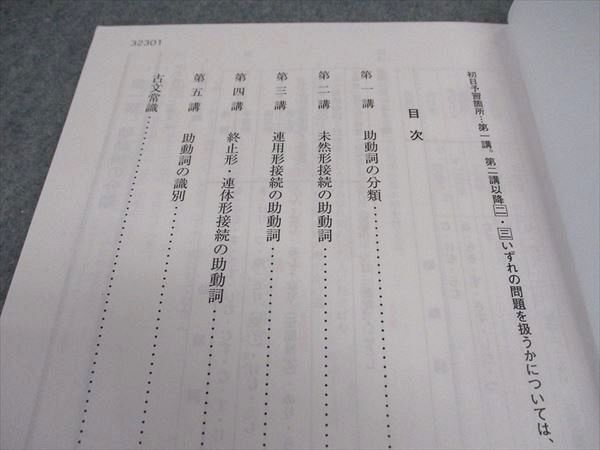 32301
初日予習箇所…第一講。第二講以降二・三いずれの問題を扱うかについては、
目次
第一講　助動詞の分類……………………
第二講　未然形接続の助動詞……………………
第三講　連用形接続の助動詞……………………
第四講　終止形・連体形接続の助動詞……………………
第五講　助動詞の識別……………………
古文常識……………………